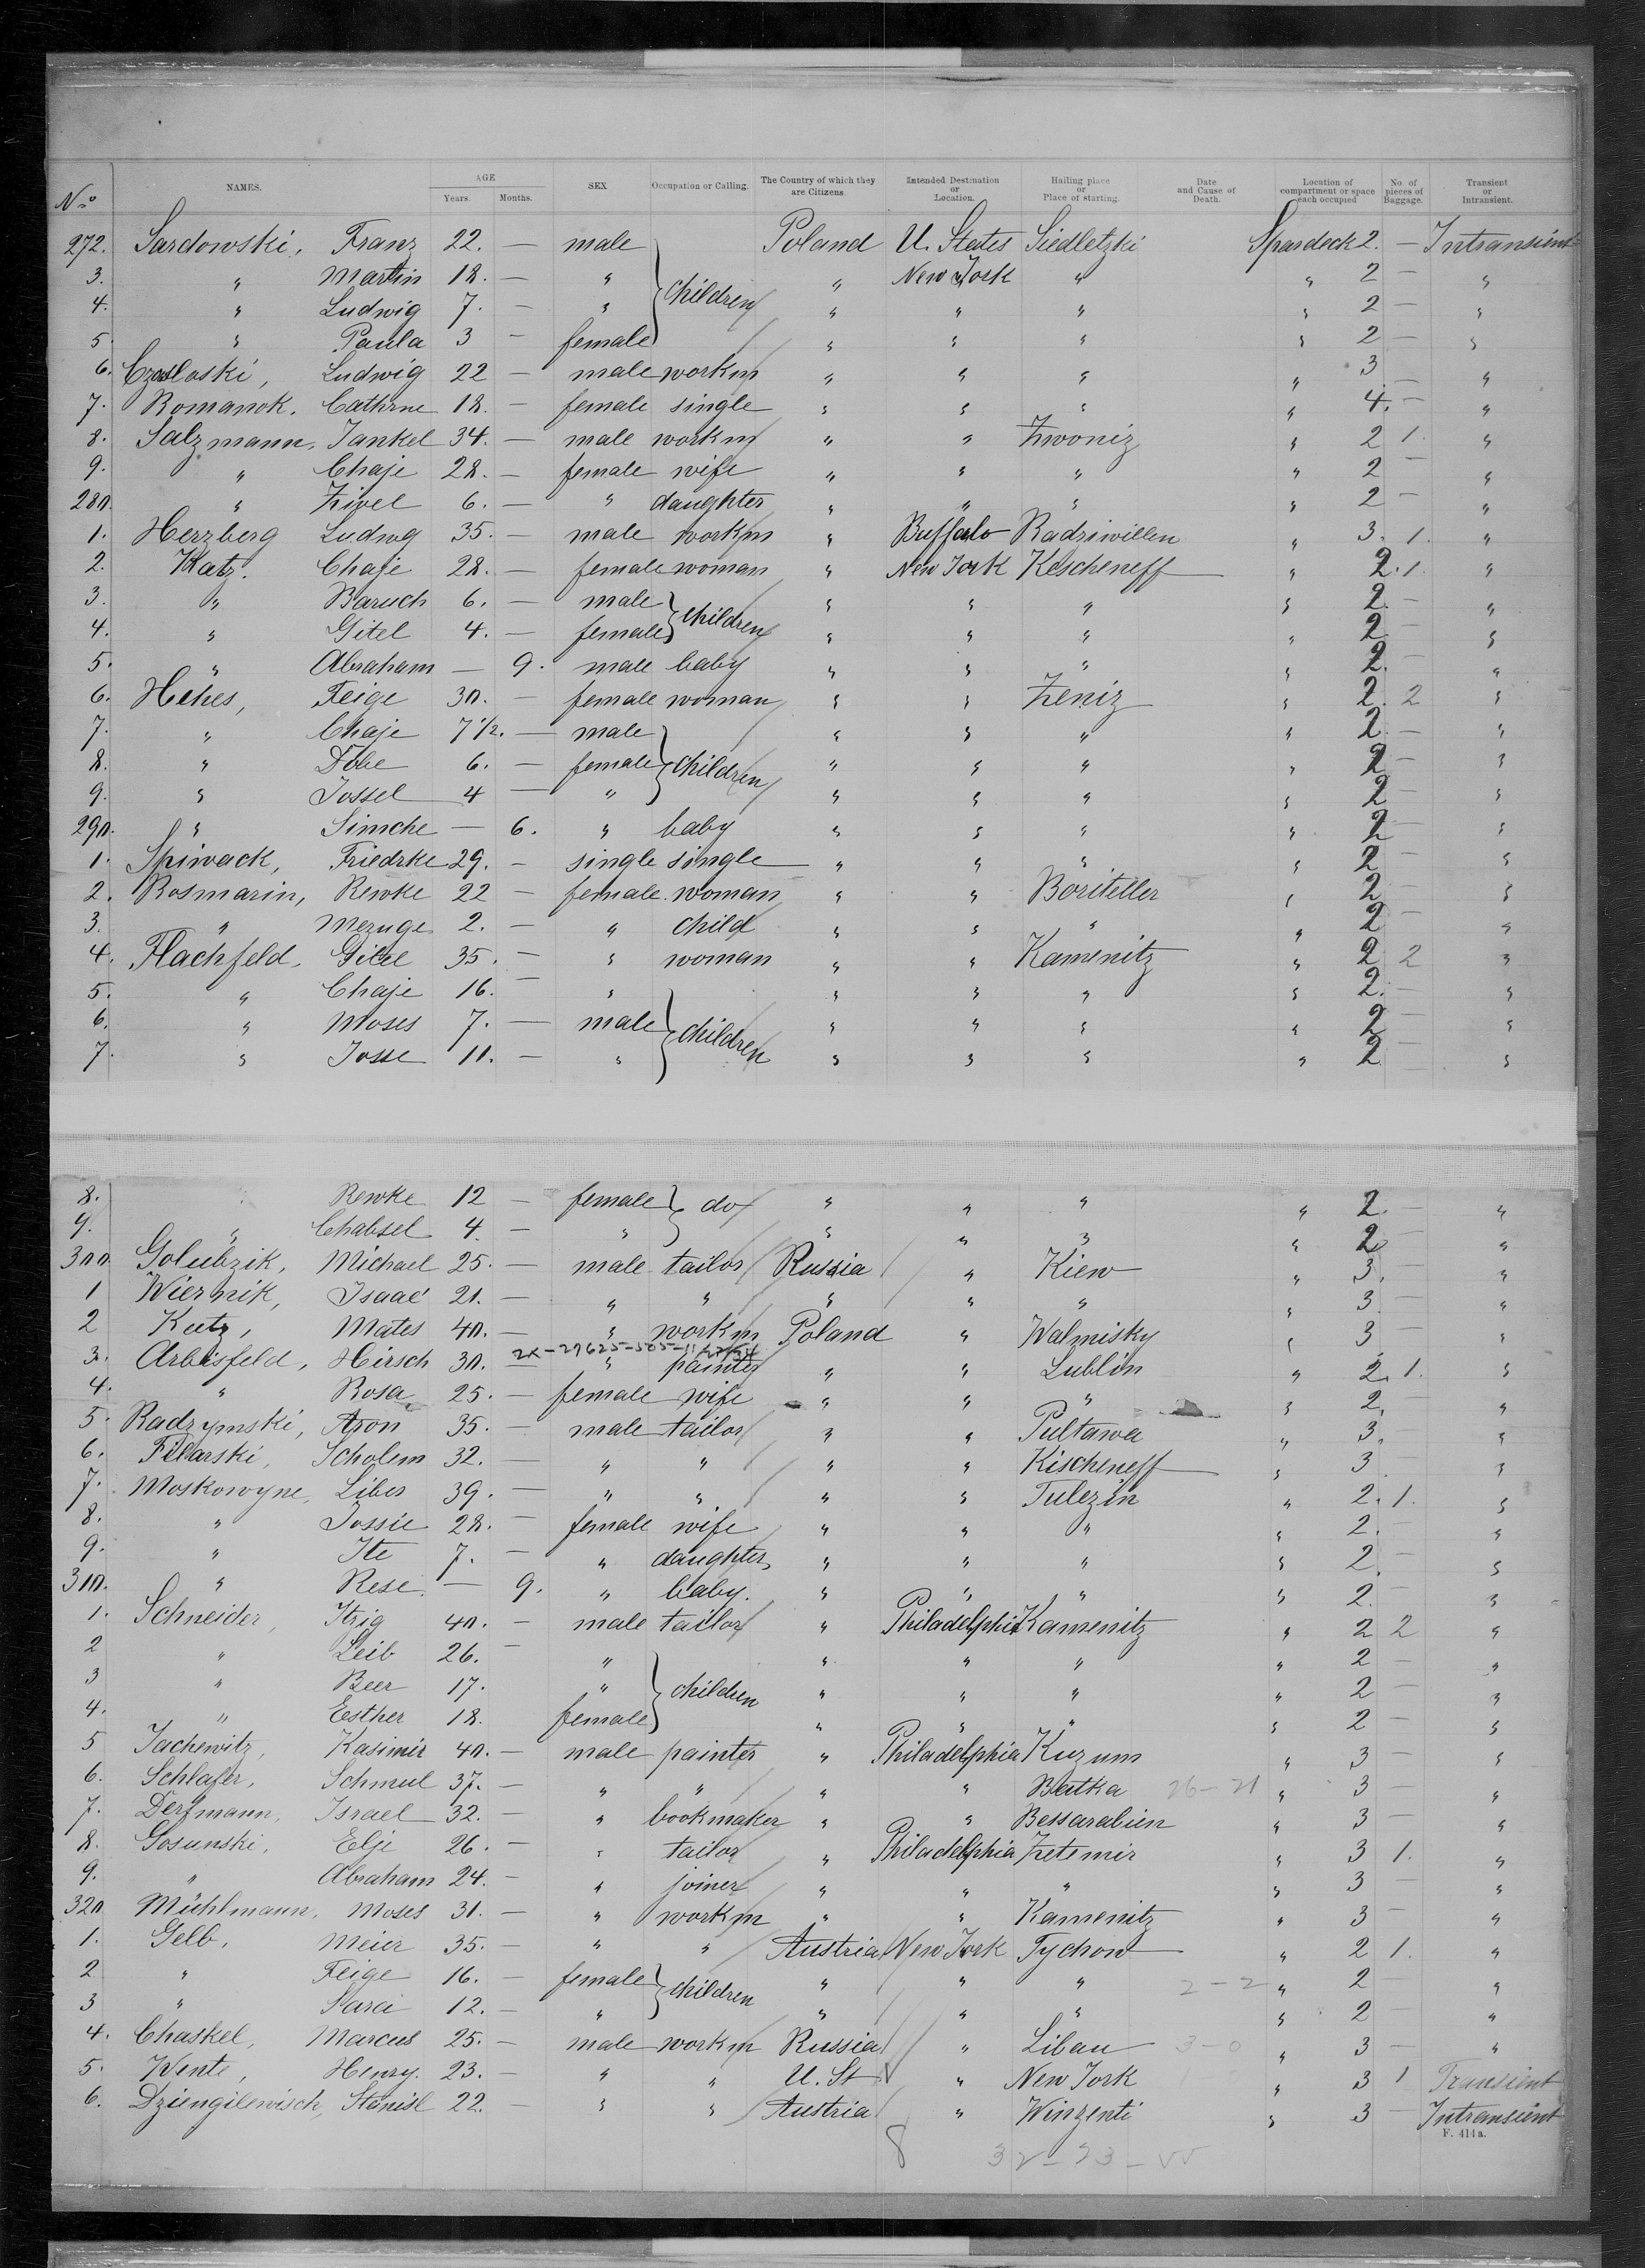 No NAMES. AGE Years. Months. SEX Occupation or Calling. The Country of which they are Citizens. Intended Destination or Location. Hailing place or Place of starting. Date and Cause of Death. Location of compartment or space each occupied No. of pieces of Baggage. Transient or Intransient.
272. Sardowski, Franz 22. — male Poland U. States Siedletzki Spardeck 2. — Intransient
3. " Martin 18. — " children " New York " " 2 — "
4. " Ludwig 7. — " " " " " 2 — "
5. " Paula 3 — female " " " " 2 — "
6. Czaslaski, Ludwig 22 — male workm " " " " 3 — "
7. Romanok. Cathrne 18. — female single " " " " 4. — "
8. Salzmann, Jankel 34. — male workm " " Zwoniz " 2 1. "
9. " Chaje 28. — female wife " " " " 2 — "
280. " Zivel 6. — " daughter " " " " 2 — "
1. Herzberg Ludwg 35. — male workm " Buffalo Radziwillen " 3. 1. "
2. Katz. Chaje 28. — female woman " New York Kescheneff " 2. 1. "
3. " Baruch 6. — male children " " " " 2. — "
4. " Gitel 4. — female " " " " 2 — "
5. " Abraham — 9. male baby " " " " 2. — "
6. Hehes, Feige 30. — female woman " " Zeniz " 2 2 "
7. " Chaje 7 1/2. — male " " " " 2. — "
8. " Dobe 6. — female children " " " " 2 — "
9. " Jossel 4 — " " " " " 2 — "
290. " Simche — 6. " baby " " " " 2 "
1. Spiwack, Friedrke 29. — single single " " " " 2 — "
2. Rosmarin, Rewke 22 — female. woman " " Boriteller " 2 — "
3. " Mezuge 2. — " child " " " " 2 — "
4. Flachfeld, Gitel 35. — " woman " " Kamenitz " 2 2 "
5. " Chaje 16. — " " " " " 2. — "
6. " Moses 7. — male children " " " " 2 — "
7. " Josse 11. — " " " " " 2 "
8. Rewke 12 — female do " " " " 2. — "
9. " Chabsel 4. — " " " " " 2 — "
300. Golubzik, Michael 25. — male tailor Russia " Kiew " 3. — "
1 Wiernik, Isaac 21. — " " " " " " 3. — "
2 Kutz, Mates 40. — " workm Poland " Walmisky " 3 — "
2x-29625-505-11/27/34
3. Arbisfeld, Hirsch 30. — " painter " " Lublin " 2. 1. "
4. " Rosa 25. — female wife " " " " 2. — "
5. Radzymski, Aron 35. — male tailor " " Pultawa " 3. — "
6. Filarski, Scholem 32. — " " " " Kischeneff " 3 — "
7. Moskowyne, Liber 39. — " " " " Tulezin " 2. 1. "
8. " Jossie 28. — female wife " " " " 2. — "
9. " Ite 7. — " daughter " " " " 2. — "
310. " Rese — 9. " baby. " " " " 2. — "
1. Schneider, Itzig 40. — male tailor " Philadelphia Kamenitz " 2 2 "
2 " Leib 26. — " " " " " 2 — "
3 " Beer 17. " children " " " " 2 — "
4. " Esther 18. female " " " " 2 — "
5 Jachewitz, Kasimir 40. — male painter " Philadelphia Kuzum " 3 — "
6. Schlafer, Schmul 37. — " " " " Batka 26-21 " 3 — "
7. Derfmann, Israel 32. — " bookmaker " " Bessarabien " 3 — "
8. Gosunski, Elje 26. — " tailor " Philadelphia Zetemir " 3 1. "
9. " Abraham 24. — " joiner " " " " 3 — "
320 Mühlmann, Moses 31. — " workm " " Kamenitz " 3 — "
1. Gelb, Meier 35. — " " Austria New York Tychow " 2 1. "
2 " Feige 16. — female children " " " 2-2 " 2 — "
3 " Sara 12. — " " " " " 2 — "
4. Chaskel, Marcus 25. — male workm Russia " Libau 3-0 " 3 — "
5. Wente, Henry. 23. — " " U. St " New York " 3 1 Transient
6. Dziengilewisch, Stanisl 22. — " " Austria " Winzenti " 3 — Intransient
F. 414a.
8 32-23-